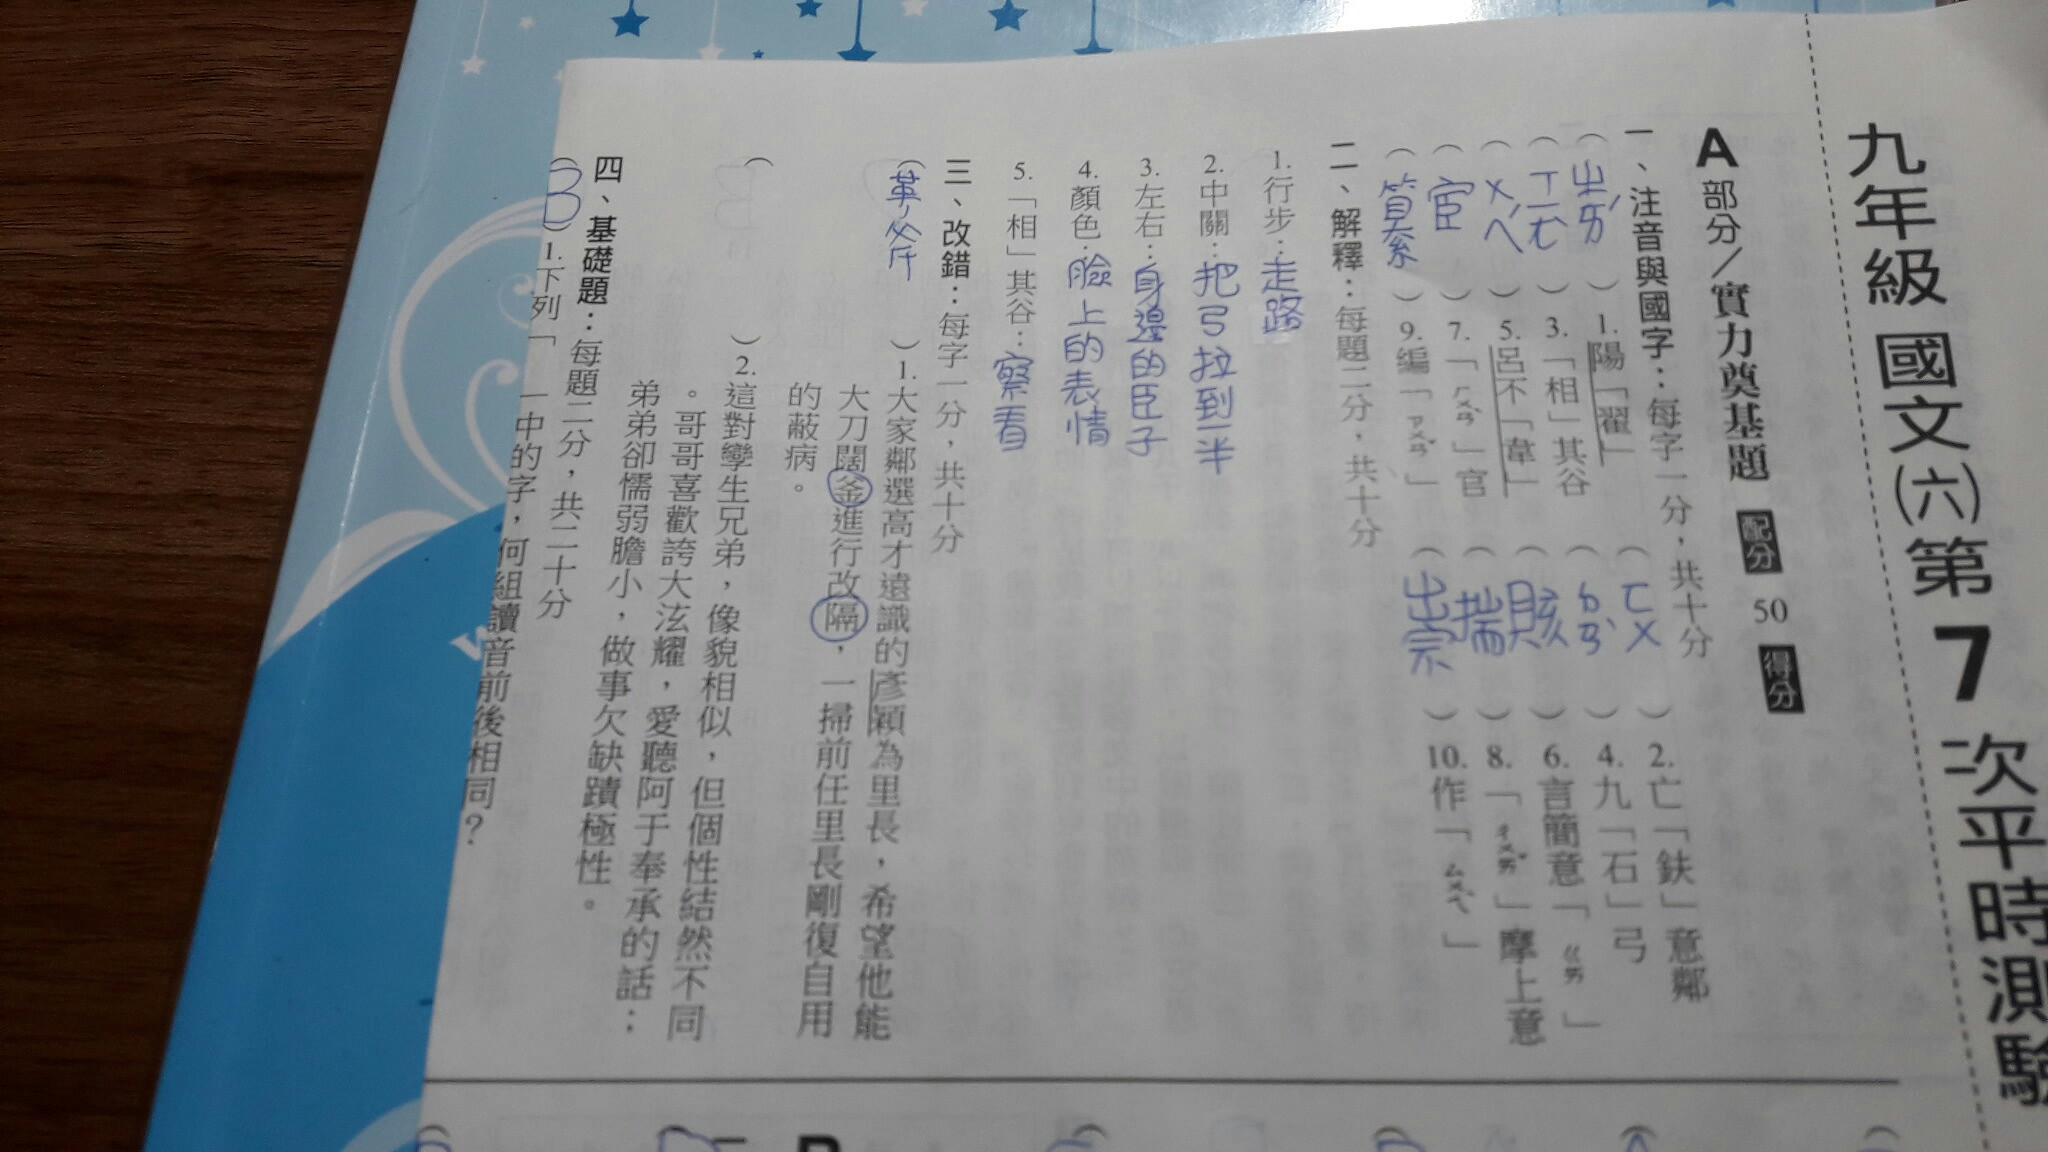 九年級 國文(六)第7次平時測驗
A部分／實力奠基題 配分 50 得分
一、注音與國字：每字一分，共十分
(ㄓㄞˊ)1.陽「翟」
(ㄈㄨ)2.亡「鈇」意鄰
(ㄒㄧㄤ)3.「相」其谷
(ㄉㄢˋ)4.九「石」弓
(ㄨㄟˊ)5.呂不「韋」
(賅)6.言簡意「ㄍㄞ」
(宦)7.「ㄏㄨㄢˋ」官
(揣)8.「ㄔㄨㄞˇ」摩上意
(纂)9.編「ㄗㄨㄢˇ」
(祟)10.作「ㄙㄨㄟˋ」
二、解釋：每題二分，共十分
1.行步：走路
2.中關：把弓拉到一半
3.左右：身邊的臣子
4.顏色：臉上的表情
5.「相」其谷：察看
三、改錯：每字一分，共十分
(革，斧)1.大家鄰選高才遠識的彥穎為里長，希望他能
大刀闊釜進行改隔，一掃前任里長剛復自用
的蔽病。
( )2.這對孿生兄弟，像貌相似，但個性結然不同
。哥哥喜歡誇大泫耀，愛聽阿于奉承的話；
弟弟卻懦弱膽小，做事欠缺蹟極性。
四、基礎題：每題二分，共二十分
(B)1.下列「 」中的字，何組讀音前後相同？